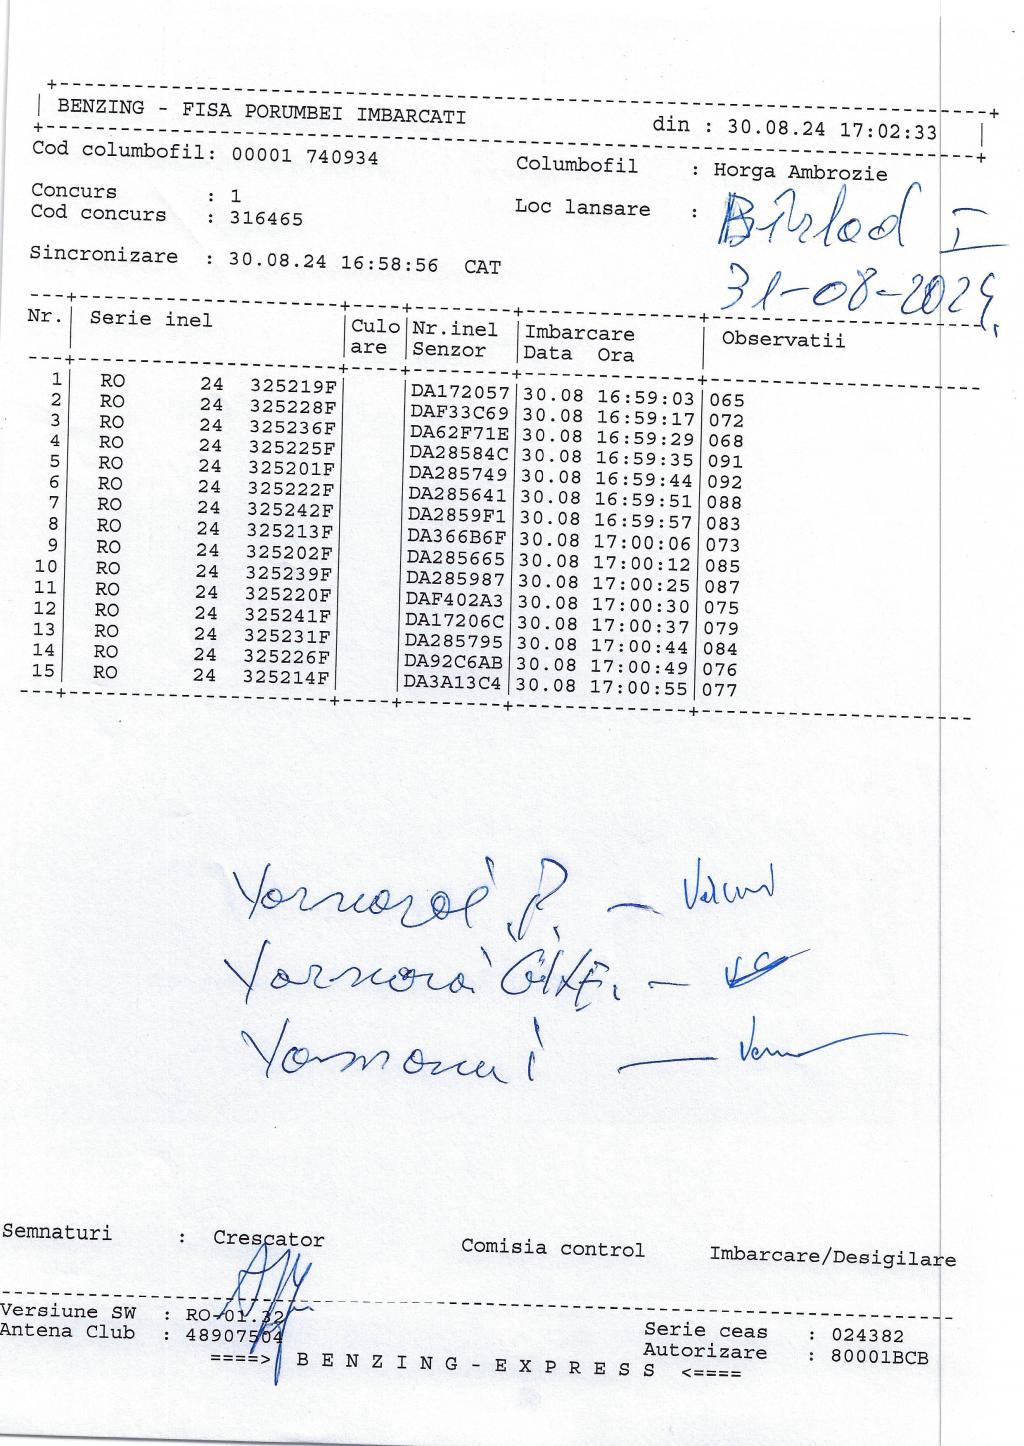 BENZING - FISA PORUMBEI IMBARCATI din : 30.08.24 17:02:33
Cod columbofil: 00001 740934 Columbofil : Horga Ambrozie
Concurs : 1 Loc lansare : Bîrlad I
Cod concurs : 316465
31-08-2024.
Sincronizare : 30.08.24 16:58:56 CAT
Nr. Serie inel Culo Nr.inel Imbarcare Observatii
are Senzor Data Ora
1 RO 24 325219F DA172057 30.08 16:59:03 065
2 RO 24 325228F DAF33C69 30.08 16:59:17 072
3 RO 24 325236F DA62F71E 30.08 16:59:29 068
4 RO 24 325225F DA28584C 30.08 16:59:35 091
5 RO 24 325201F DA285749 30.08 16:59:44 092
6 RO 24 325222F DA285641 30.08 16:59:51 088
7 RO 24 325242F DA2859F1 30.08 16:59:57 083
8 RO 24 325213F DA366B6F 30.08 17:00:06 073
9 RO 24 325202F DA285665 30.08 17:00:12 085
10 RO 24 325239F DA285987 30.08 17:00:25 087
11 RO 24 325220F DAF402A3 30.08 17:00:30 075
12 RO 24 325241F DA17206C 30.08 17:00:37 079
13 RO 24 325231F DA285795 30.08 17:00:44 084
14 RO 24 325226F DA92C6AB 30.08 17:00:49 076
15 RO 24 325214F DA3A13C4 30.08 17:00:55 077
Semnaturi : Crescator Comisia control Imbarcare/Desigilare
Versiune SW : RO-01.32 Serie ceas : 024382
Antena Club : 48907504 Autorizare : 80001BCB
====> B E N Z I N G - E X P R E S S <====